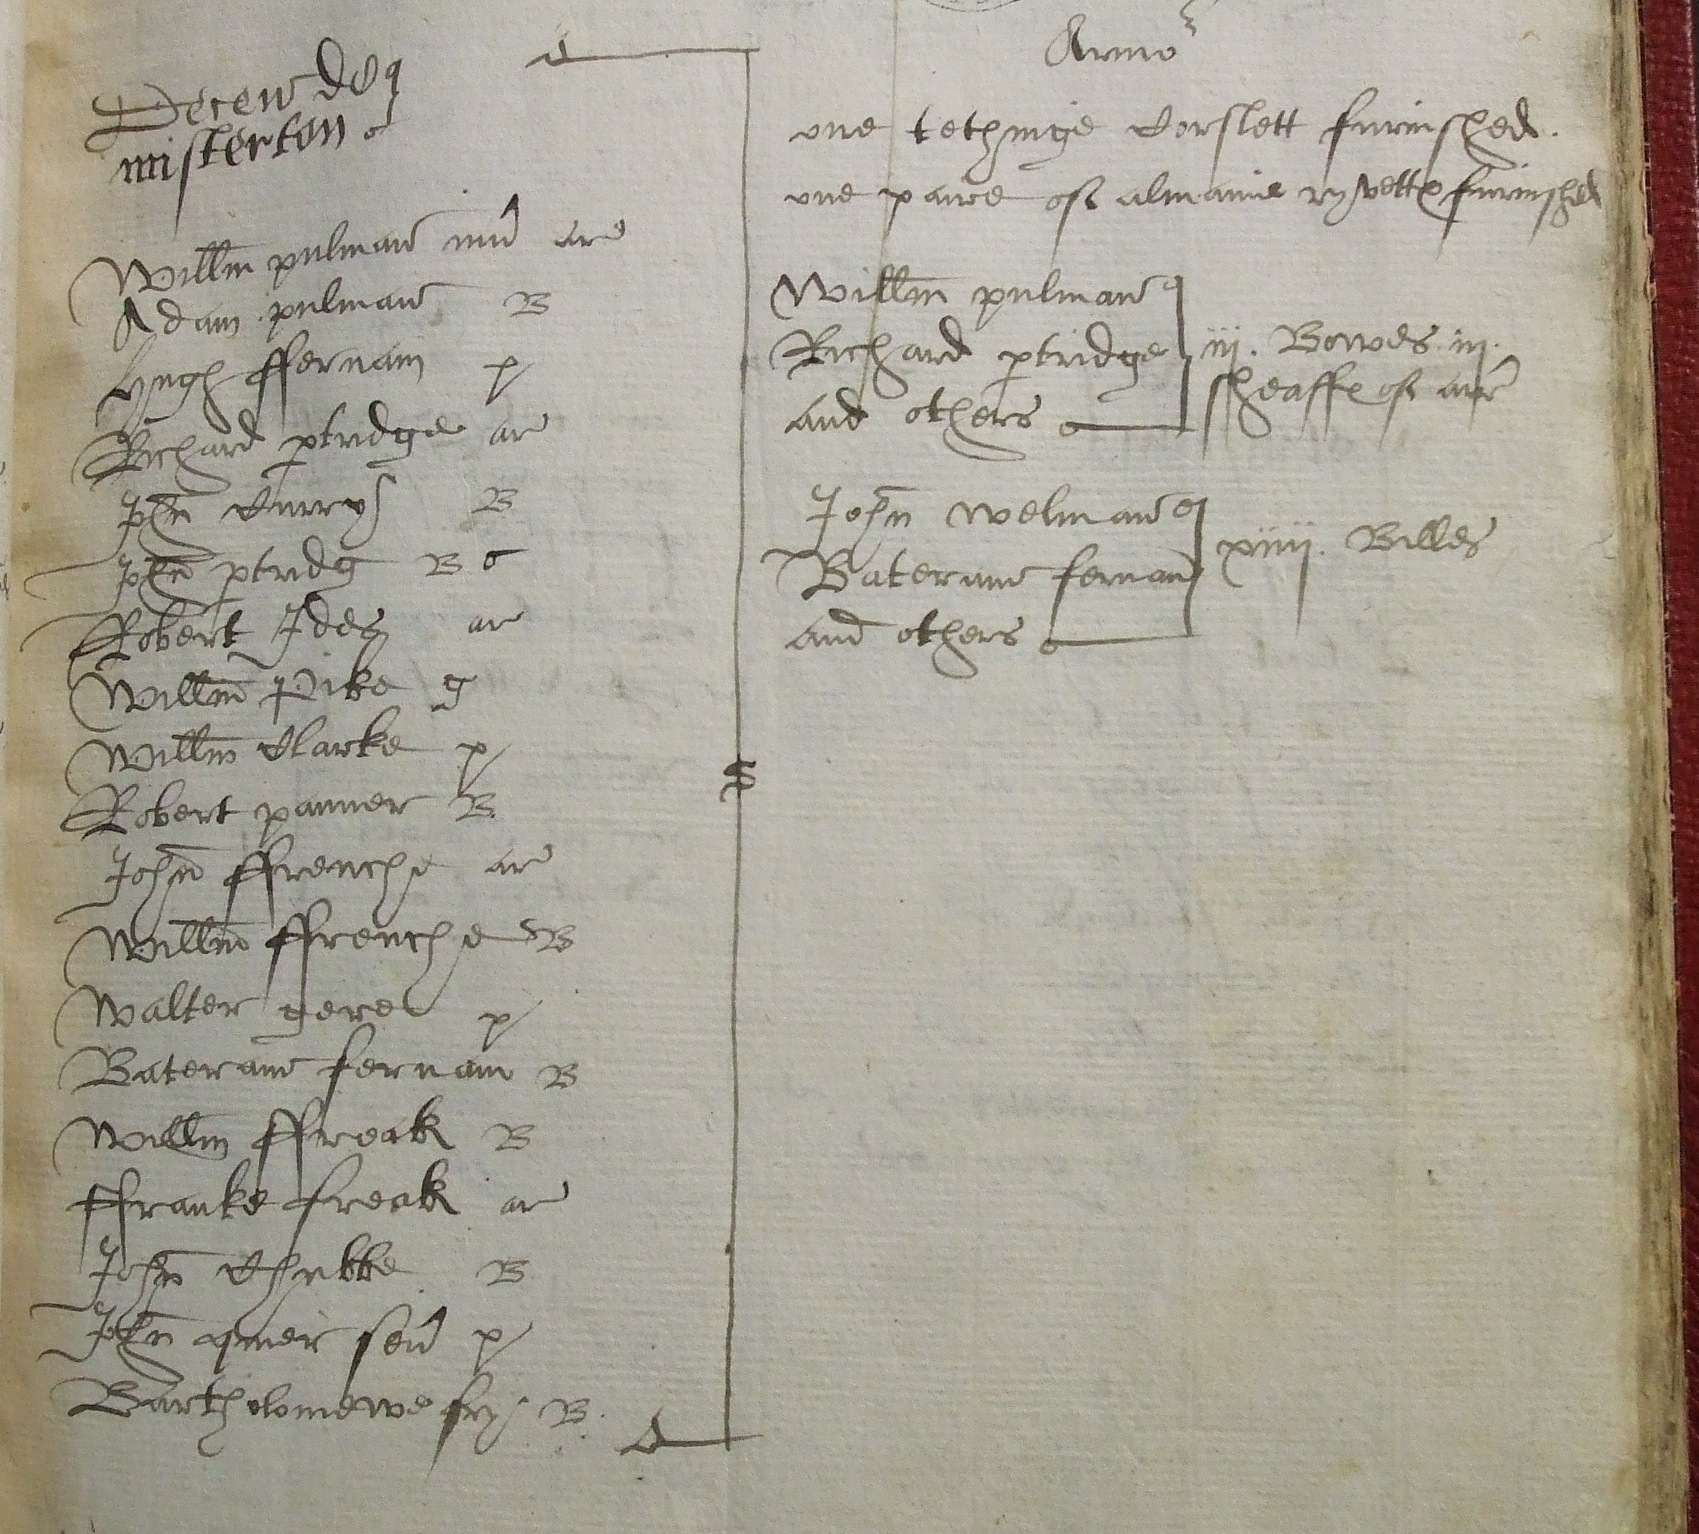 Decem d
misterton
Willm pulman iun ar
Adam pulman B
Hugh ffernam p
Richard ptridge ar
John Currys B
John ptridg B
Robert Ides ar
Willm Pike g
Willm Clarke p
Robert panner B
John ffrenche ar
Willm ffrenche B
Walter gere p
Bateram fernam B
Willm ffreak B
ffranke freak ar
John Chubbe B
John senr p
Bartholomewe fry B
Armor
one tethinge Corslett furnished.
one paire of almaine ryvette furnished
Willm pulman
Richard ptridge
and others
iii. Bowes iii.
sheaffe of arr
John Welman
Bateram fernam
and others
xiiii. Billes